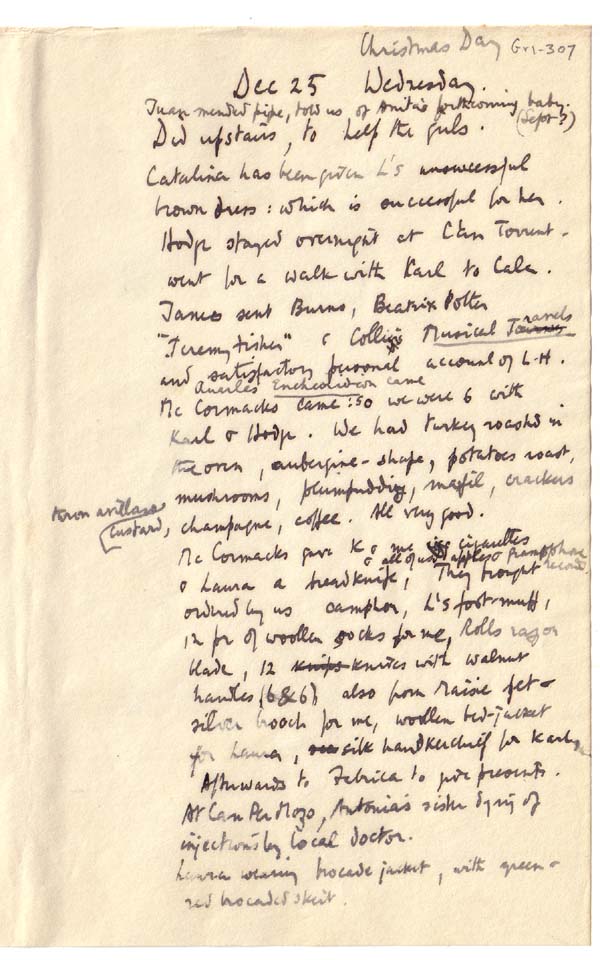 Christmas Day Gr1-307
Dec 25 Wednesday.
Juan mended pipe, told us of Anita's forthcoming baby.
(Sept?)
Did upstairs, to help the girls.
Catalina has been given L's unsuccessful
brown dress: which is successful for her.
Hodge stayed overnight at C'an Torrent -
went for a walk with Karl to Cala.
James sent Burns, Beatrix Potter
"Jeremy Fisher" & Collis's Musical Travels
and satisfactory personal account of L-H.
Quarles Encheiridion came
McCormacks came: so we were 6 with
Karl & Hodge. We had turkey roasted in
the oven, aubergine-shape, potatoes roast,
mushrooms, plumpudding, crackers
custard,
champagne, coffee. All very good.
McCormacks gave K & me cigarettes
& all of us apples & gramophone
records
& Laura a breadknife, They brought
ordered by us camphor, L's foot-muff,
12 pr of woollen socks for me, Rolls razor
blade, 12 knips knives with walnut
handles (6&6) also from Maisie jet &
silver brooch for me, woollen bed-jacket
for Laura, silk handkerchief for Karl
Afterwards to Fabrica to give presents.
At Can Pa Mozo, Antonia's sister dying of
injections by local doctor.
Laura wearing brocade jacket, with green &
red brocaded skirt.